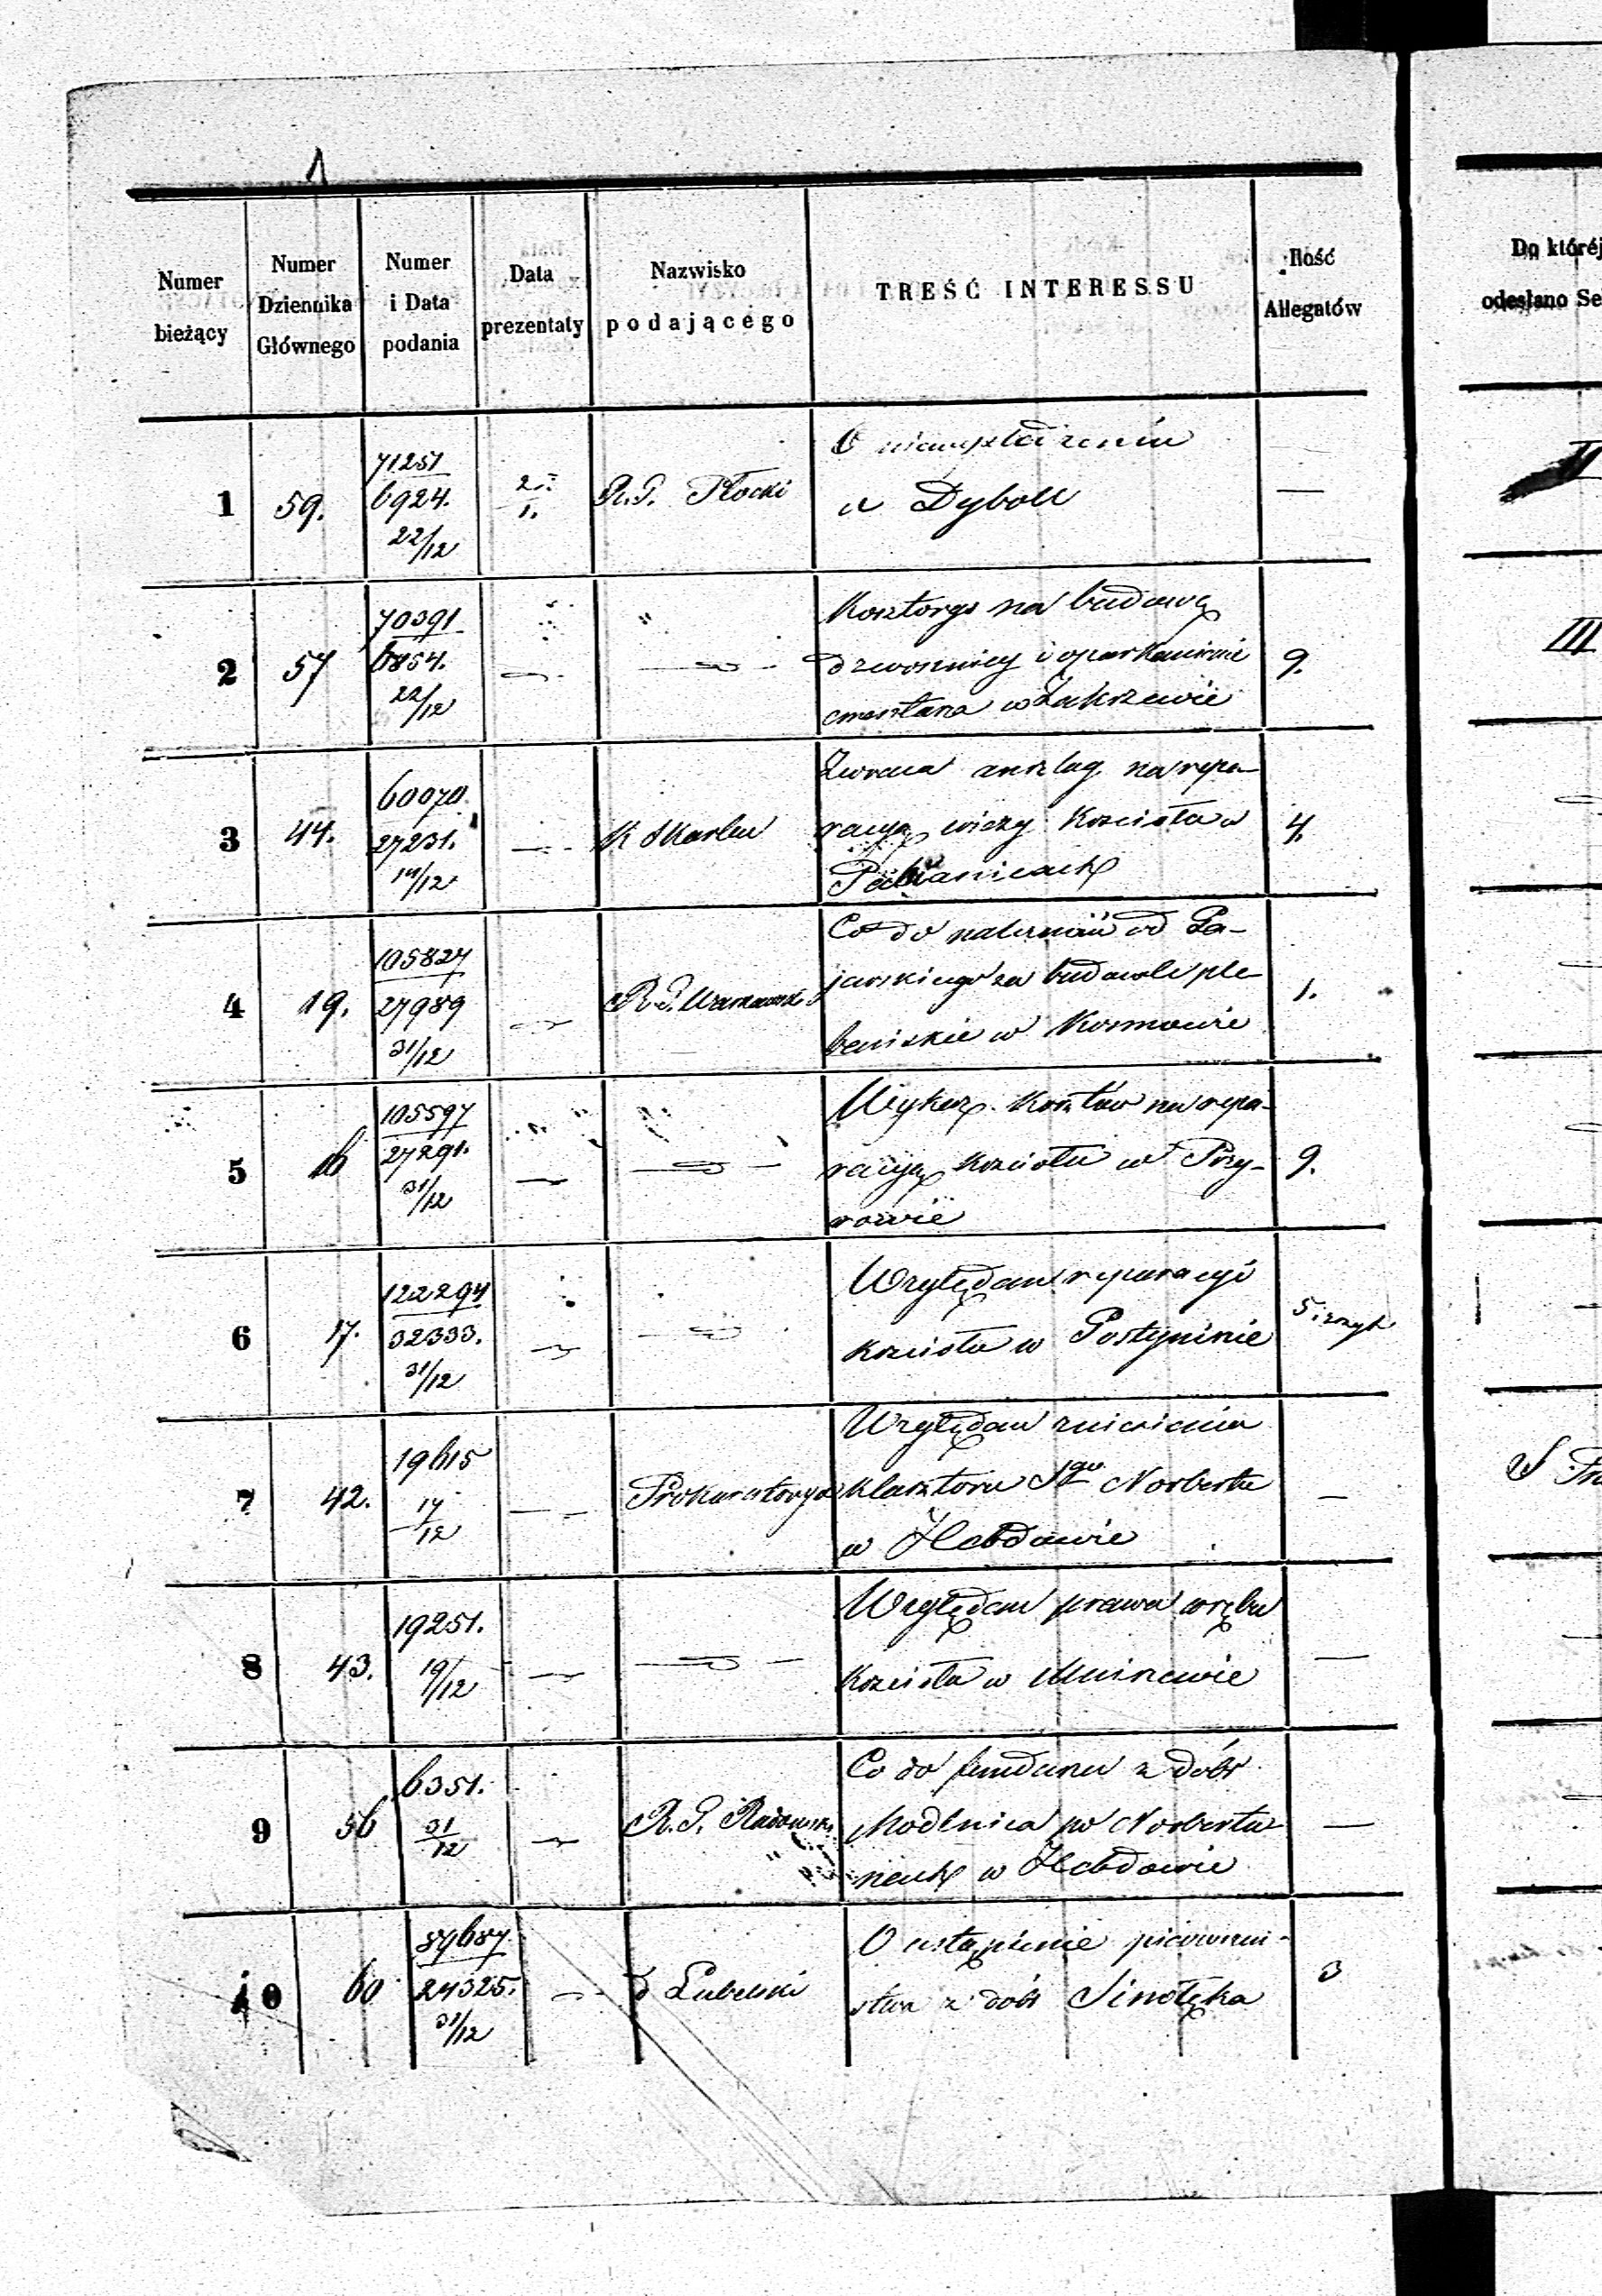 1
Numer bieżący
Numer Dziennika Głównego
Numer i Data podania
Data prezentaty
Nazwisko podającego
TREŚĆ INTERESSU
Ilość Allegatów
Do któréj
odesłano Se
1 59. 71251 6924. 22/12 2 1. R.G. Płocki
O
w Dyboll
—
2 57 70391 6854. 22/12 — " —
Kosztorys na budowę
dzwonnicy i oparkanienie
cmentarza w Zakrzewie
9.
III
3 44. 60070. 27231. 14/12 — K Skarbu
Zwraca anszlag na repa-
racyą wieży Kościoła w
Pabianicach
4.
4 19. 105827 27989 31/12 — R.G. Warszawski
Co do należności od Ga-
jewskiego za budowle ple-
bańskie w
1.
5 16 105597 27291. 31/12 — —
Wykaz kosztów na repa-
racyą kościoła w Przy-
rowie
9.
6 17. 122294 32333. 31/12 — —
Względem reparacyi
kościoła w Postyninie
5 i
7 42. 19615 17/12 — Prokuratorya
Względem zniesienia
klasztoru Sgo Norberta
w Hebdowie
—
8 43. 19251. 19/12 — —
Względem prawa wrębu
Kościoła w
—
9 56 6351. 31/12 — R.G. Radomski
Co do funduszu z dóbr
Modlnica po Norberta-
nech w Hebdowie
—
10 60 89687 24325. 31/12 — d Lubelski
O ustąpienie pierwszeń-
stwa z dóbr Sinołęka
3